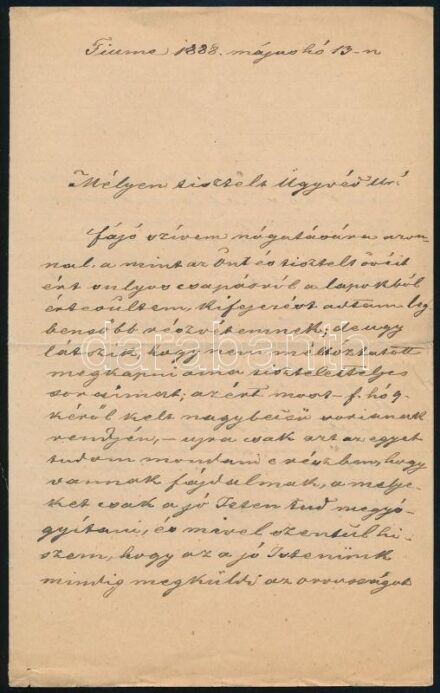 Fiume 1888. május hó 13-n
Mélyen tisztelt Ügyvéd Úr!
Fájó szívem nógatására azon-
nal, a mint az Önt és tisztelt övéit
ért súlyos csapásról a lapokból
értesültem, kifejezést adtam leg
bensőbb részvétemnek, de ugy
látszik, hogy nem méltóztatott
megkapni ama tiszteletteljes
soraimat; azért most f. hó
kéről kelt nagybecsű sorainak
rendjén, – ujra csak azt az egyet
tudom mondani e részben, hogy
vannak fájdalmak, a melye-
ket csak a jó Isten tud meggyó-
gyítani, és mivel szentül hi-
szem, hogy az a jó Istenünk
mindig megküldi az orvosságot
darabanth